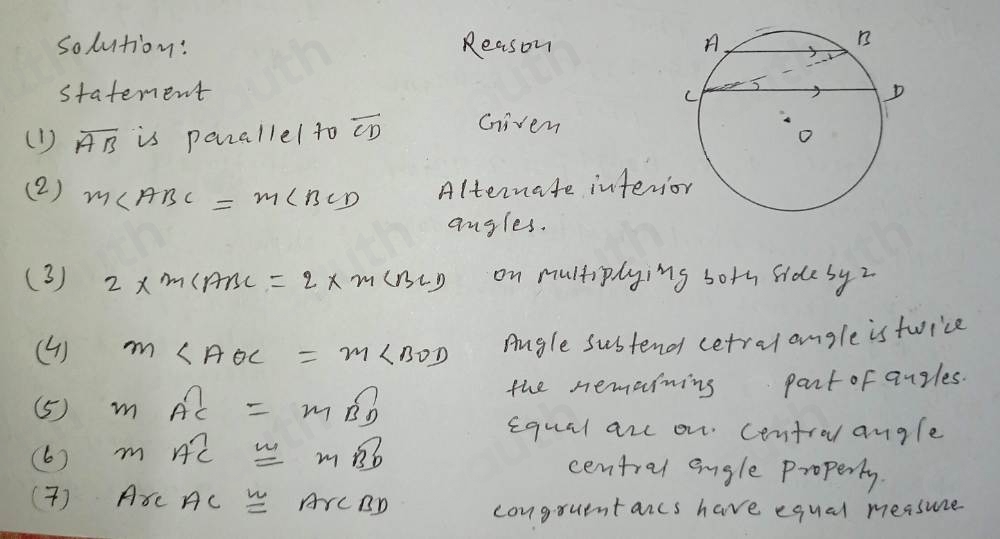 Solution: Reason
Statement
(1) AB is parallel to CD Given
(2) m<ABC = m<BCD Alternate interior
angles.
(3) 2 x m<ABC = 2 x m<BCD on multiplying both side by 2
(4) m <AOC = m<BOD Angle subtend cetral angle is twice
the remaining part of angles.
(5) m AC = m BD Equal arc on. central angle
(6) m AC ≅ m BD central angle property.
(7) Arc AC ≅ Arc BD congruent arcs have equal measure
A B
C D
O